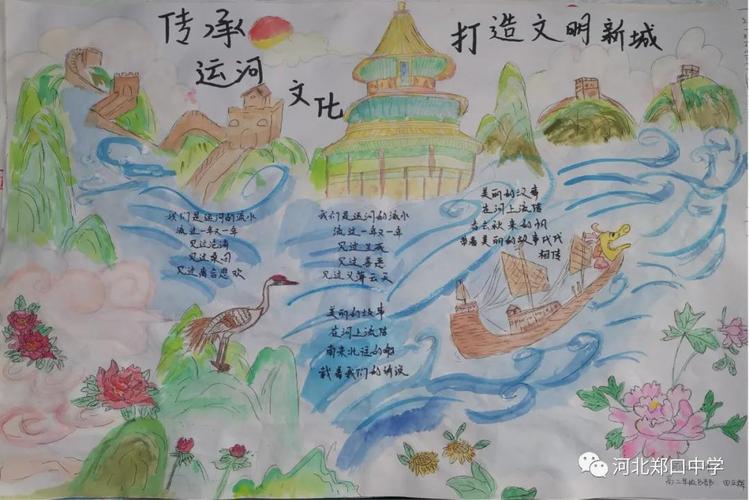 传承
运河
文化
打造文明新城
我们是运河的流水
流过一年又一年
见过沧海
见过桑田
见过离合悲欢
我们是运河的流水
流过一年又一年
见过喜悉
见过义薄云天
美丽的故事
在河上流传
南来北往的船
载着我们的诉说
美丽的故事
在河上流传
带着美丽的故事代代
相传
河北郑口中学